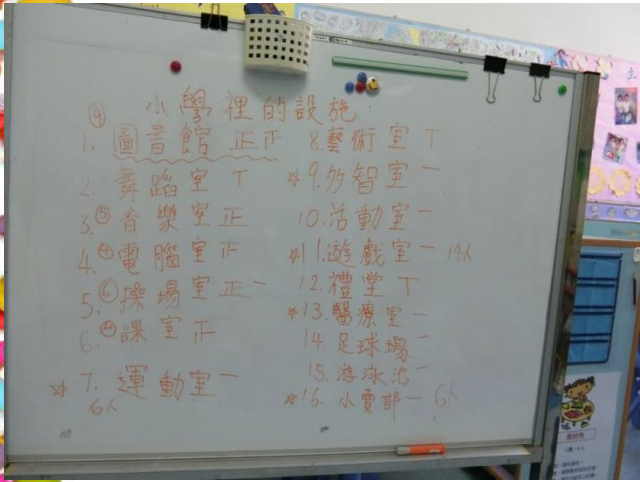 小學裡的設施:
⑨
1. 圖書館 正正
2. 舞蹈室 丅
3. ⑤ 音樂室 正
4. ④ 電腦室 正
5. ⑥ 操場室 正一
6. ④ 課室 正
☆7. 運動室 一
6人
8. 藝術室 丅
☆9. 多智室 一
10. 活動室 一
☆11. 遊戲室 一 14人
12. 禮堂 丅
☆13. 醫療室 一
14. 足球場 一
15. 游泳池 一
☆16. 小賣部 一 6人